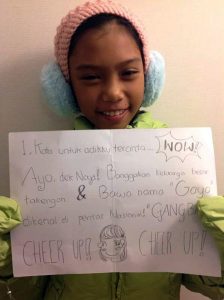 1. Kata untuk adikku tercinta... WOW!
Ayo, dek Naya! Banggakan keluarga besar
takengon & Bawa nama "Gayo"
dikenal di pentas Nasional! "GANBA
CHEER UP!! CHEER UP!!